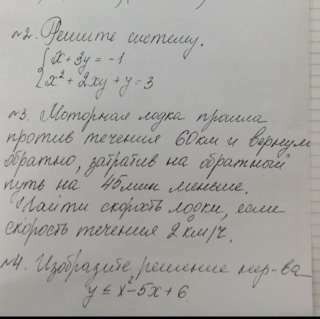 №2. Решите систему.
{ x + 3y = -1
x² + 2xy + y = 3
№3. Моторная лодка прошла
против течения 60км и вернул
обратно, затратив на обратный
путь на 45мин меньше.
Найти скорость лодки, если
скорость течения 2 км/ч.
№4. Изобразите решение нер-ва
y ≤ x² - 5x + 6